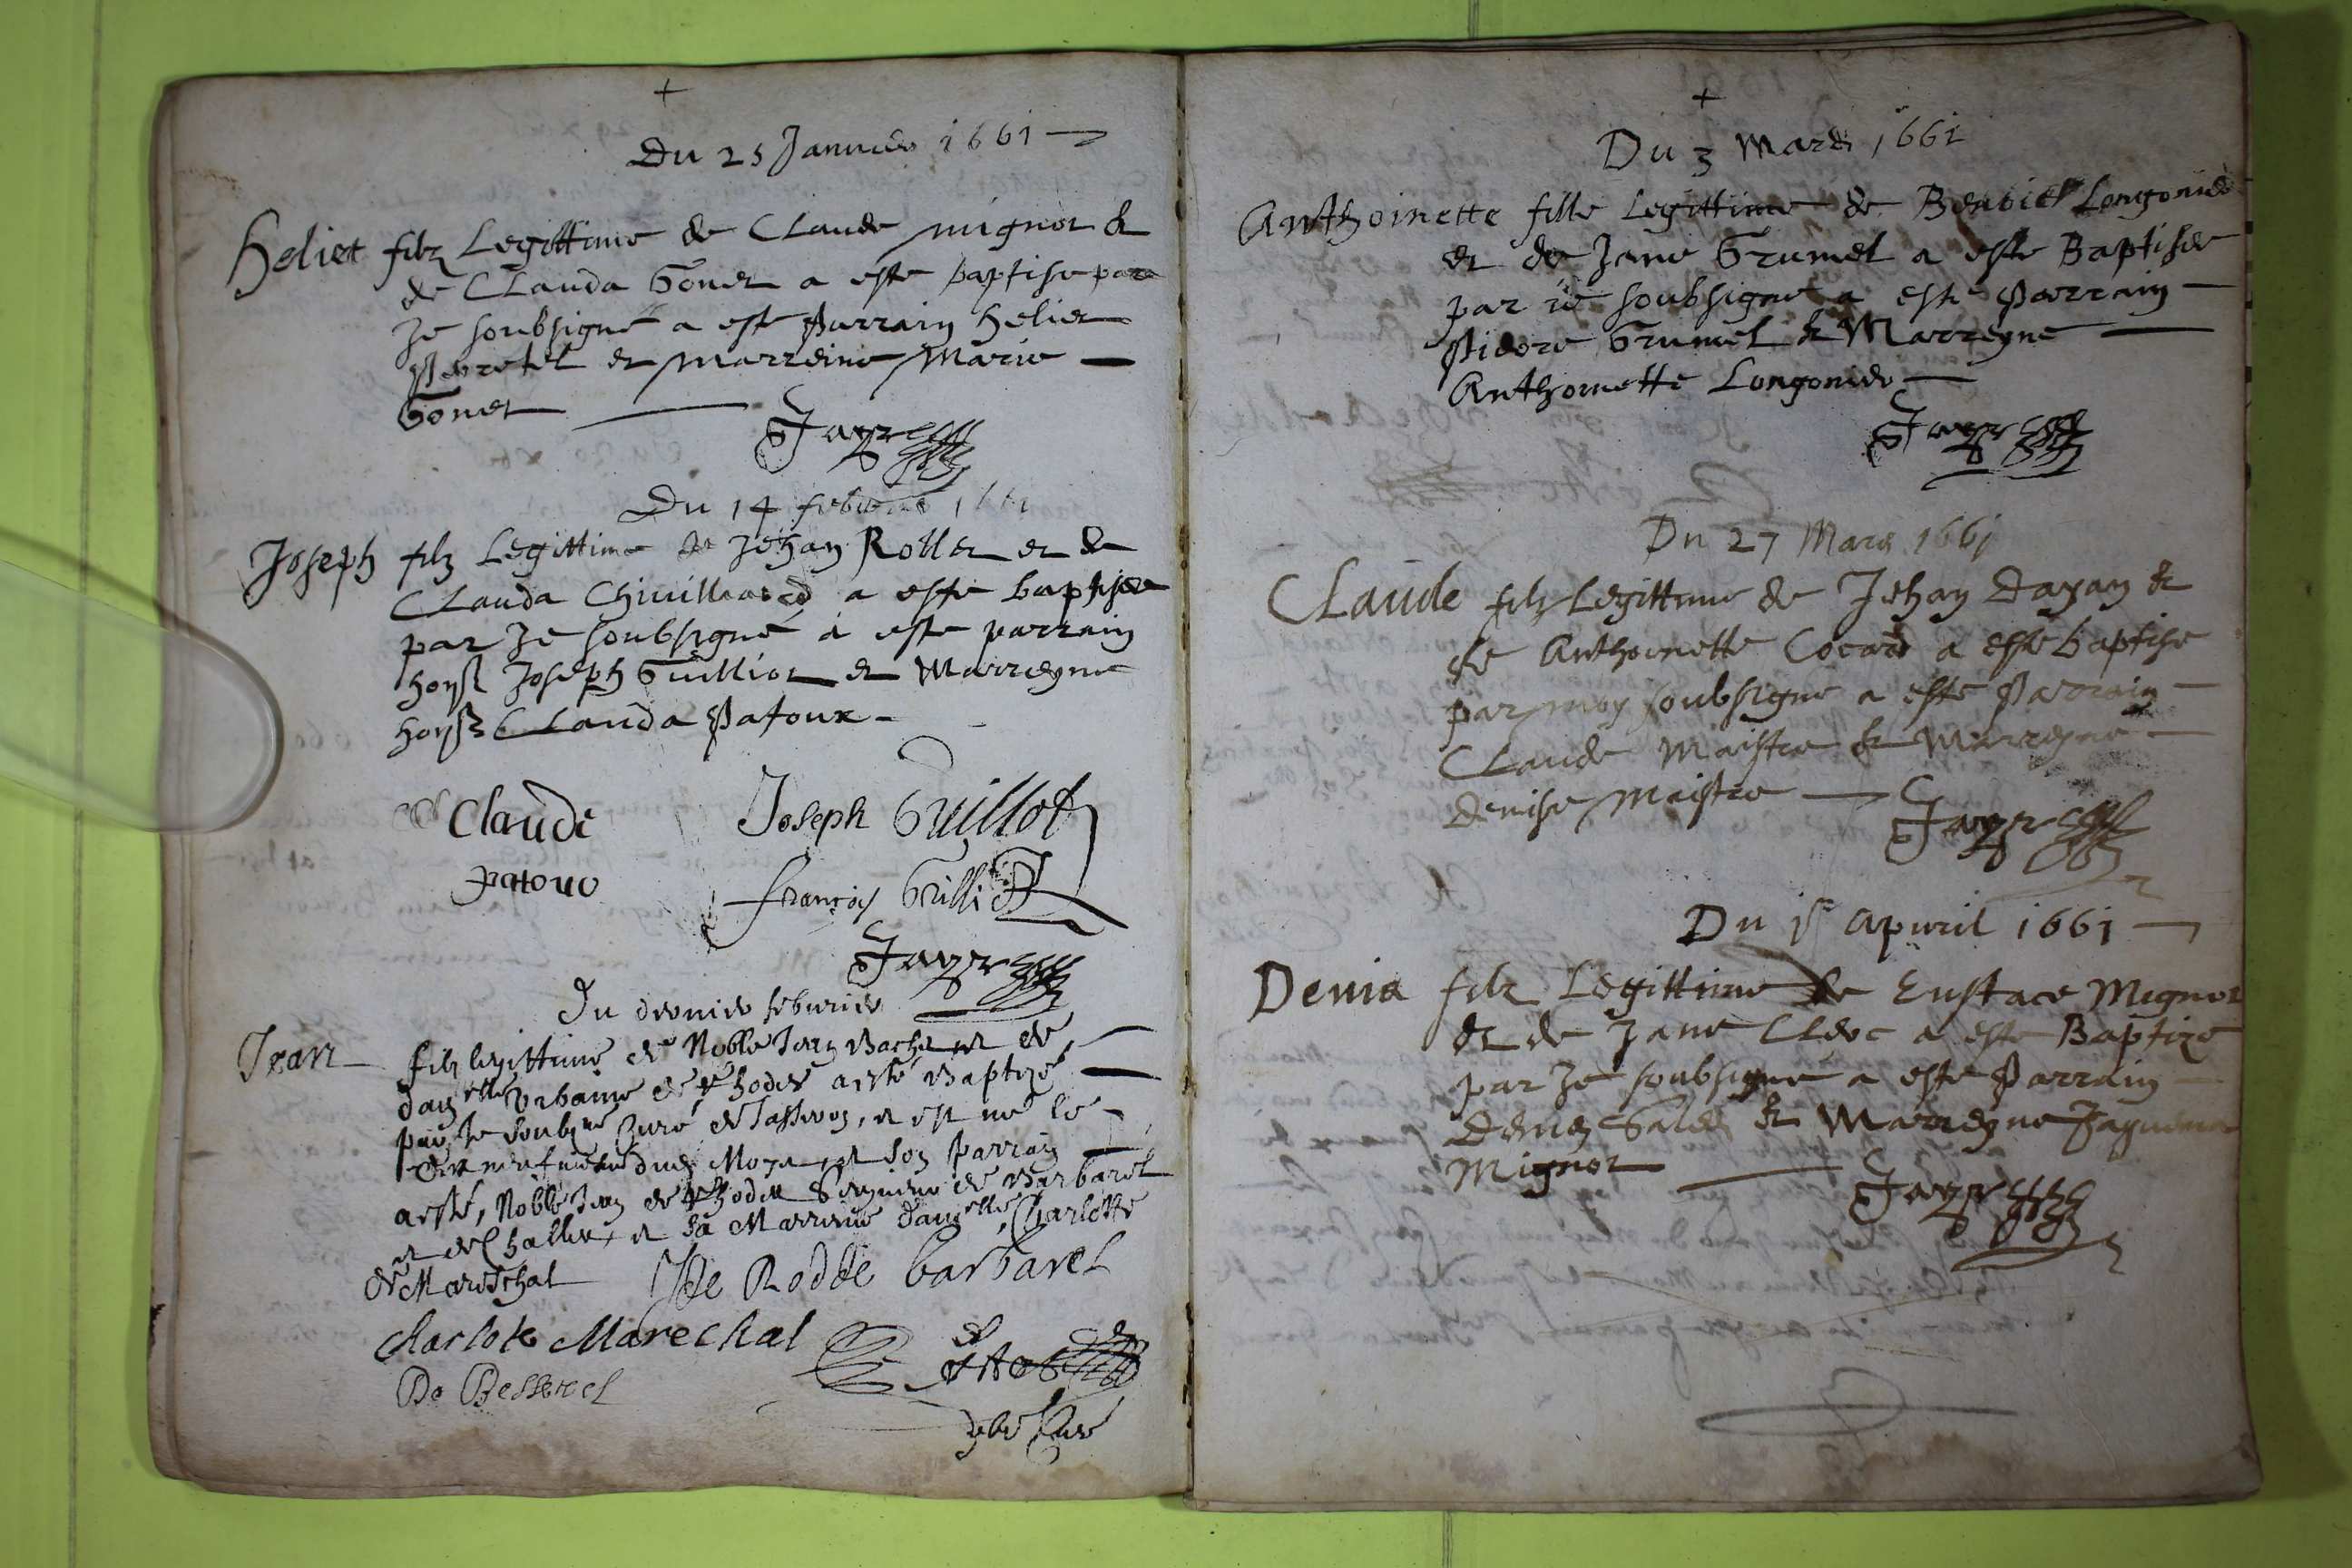 Du 25 Januier 1661
Heliet filz Legittime de Claude mignot &
de Clauda Gonet a este baptise par
Je soubsigne a este parrain Heliet
Pevretel et marreine Marie
Gonet
Jayr
Du 14 febvrier 1661
Joseph filz Legittime de Jehan Rollet et de
Clauda Chivilliard a este baptise
par Je soubsigné a este parrain
honste Joseph Guilliot et Marreyne
honste Clauda Patoux
Claude Joseph Guillot
patouo françois Guilliot
Jayr
Du dernier feburier
Jean filz legittime de Noble Jean Bachet et de
damelle Urbaine de Rhodes a esté Baptizé
par Je soubsigné Curé de Jasseron, et est né le
du Moys, et son parrain
a esté, Noble Jean de Rhodes Seigneur de Barbarel
et de Challes, et sa Marrene damelle Charlotte
de Mareschal J De Rodde barbarel
charlote Marechal
De Besserel
Du 3 Mars 1661
Anthoinette fille Legittime de Benoict Longonier
et de Jane Grumel a este Baptisee
par ie soubsigne a este Parrain
Pidore Grumel & Marreyne
Anthoinette Longonier
Jayr
Du 27 Mars 1661
Claude filz Legittime de Jehan Dayan &
de Anthoinette Cocard a este baptise
par moy soubsigne a este Parrain
Claude Maistre & Marreyne
denise Maistre
Jayr
Du 1er apuril 1661
Denis filz Legittime de Eustace Mignot
et de Jane Clerc a este Baptize
par Je soubsigne a este Parrain
Denis Sales & Marreyne Jaquema
Mignot
Jayr